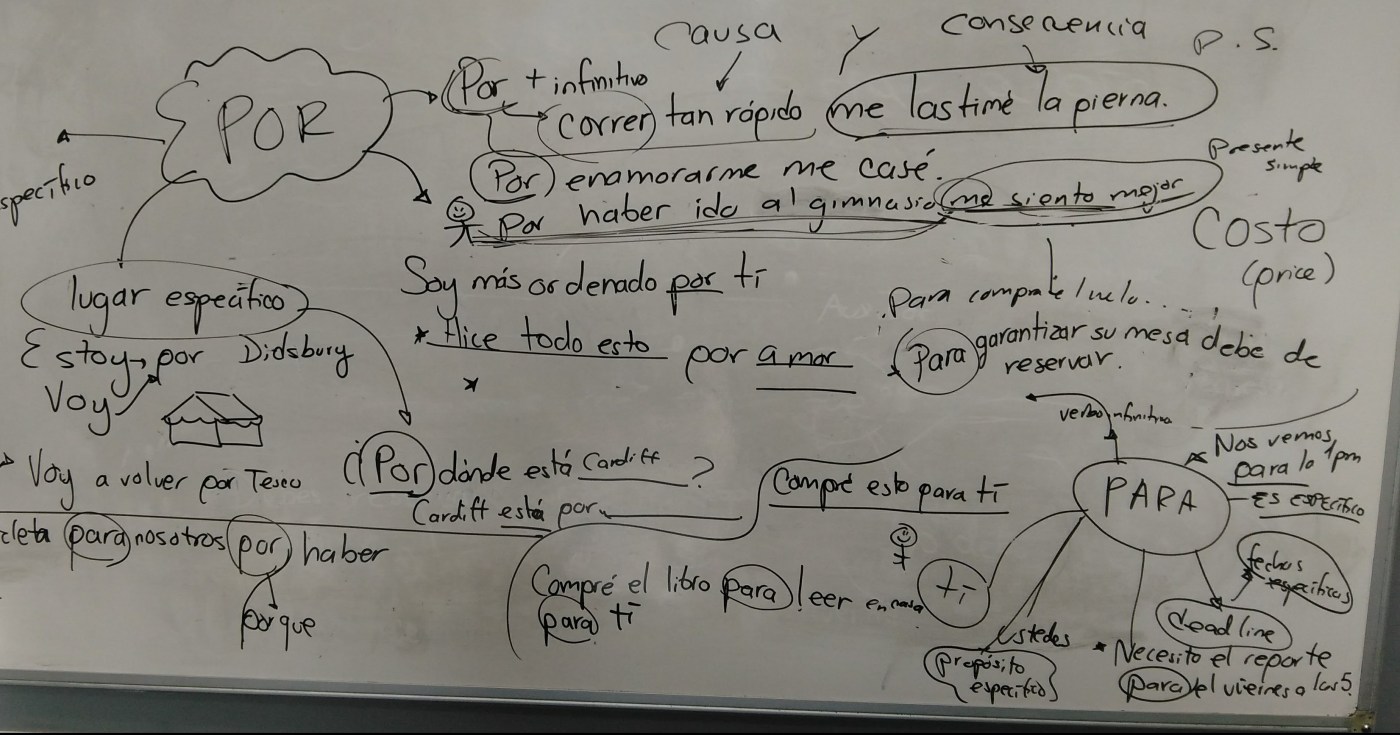 Causa y consecuencia P.S.
POR
Por + infinitivo
correr tan rápido me lastimé la pierna.
Por enamorarme me casé.
Presente simple
Por haber ido al gimnasio me siento mejor
specífico
Costo
(price)
lugar específico
Soy más ordenado por ti
Estoy por Didsbury
Voy
* Hice todo esto por amor
Para garantizar su mesa debe de
reservar.
verbo infinitivo
Voy a volver por Tesco
¿Por dónde está Cardiff?
Cardiff está por
Compré esto para ti
PARA
Nos vemos
para la 1pm
ES ESPECÍFICO
cleta para nosotros por haber
porque
Compré el libro para leer en casa
para ti
ti
ustedes
propósito
específico
fechas
específicas
deadline
* Necesito el reporte
para el vieirnes a las 5.